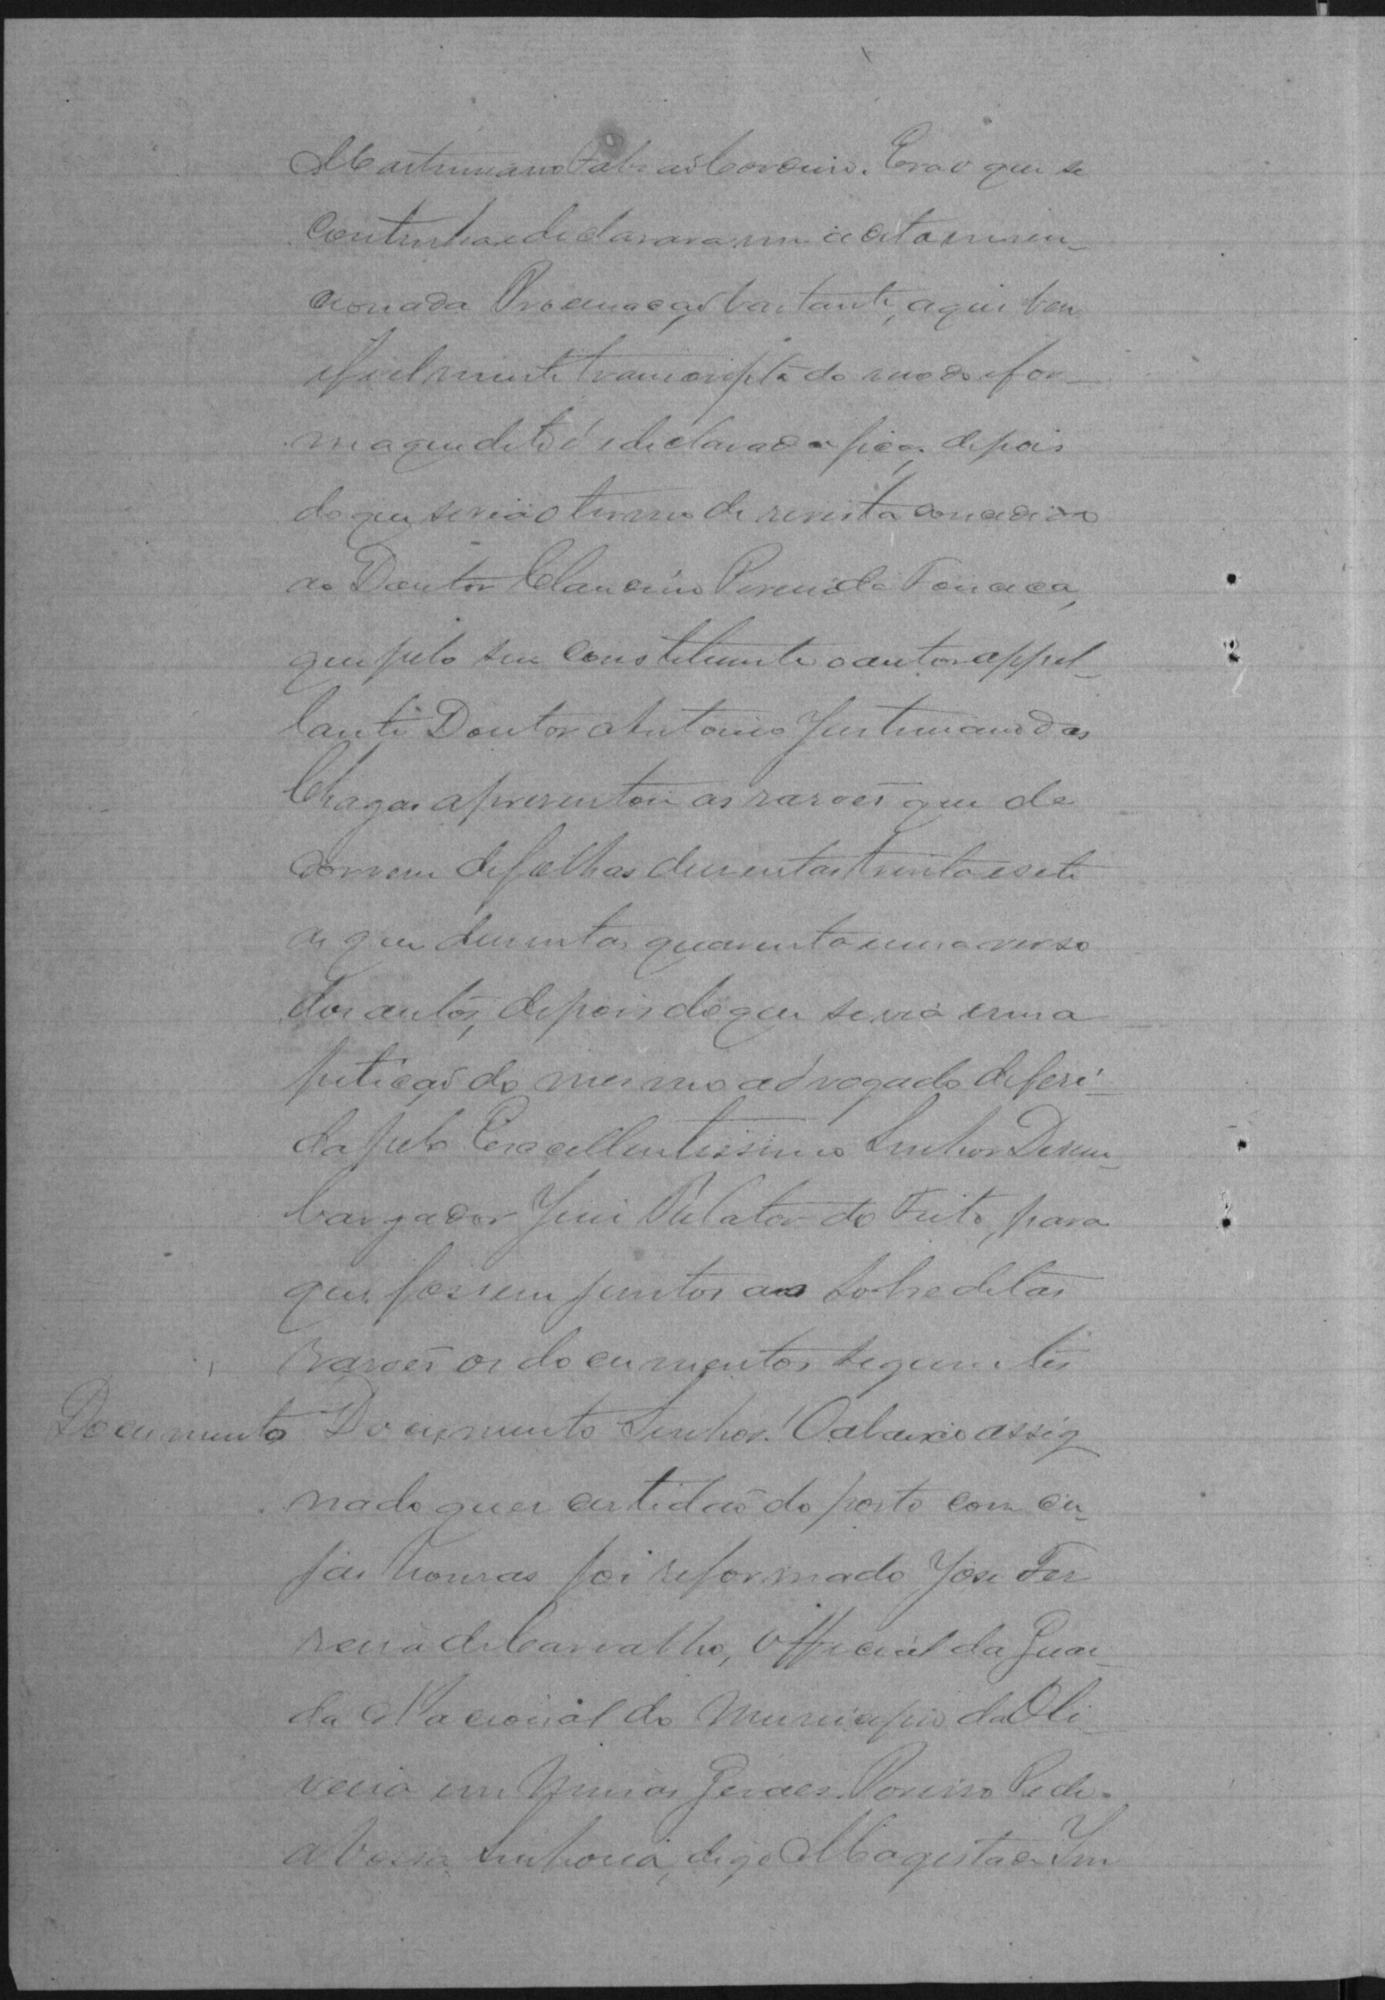 Martiniano Cordeiro. Era o que se
continha e declarava em a dita emen-
cionada Procuração bastante, aqui bem
e fielmente transcripta do modo e for-
ma que dito é e declarada fica, depois
do que se via o termo de revista
ao Doutor Claudino Pereira da Fonceca,
que pelo seu constituinte o autor appel-
lante Doutor Antonio Justiniano das
Chagas apresentou as rasoes que de
correm de folhas dusentas trinta e sete
as que dusentas quarenta e uma verso
dos autos, depois do que se via uma
petição do mesmo advogado deferi-
da pelo Excellentissimo Senhor Desem-
bargador Juis Relator do Feito, para
que fossem juntos as sobreditas
rasoes os documentos seguintes
Documento Documento Senhor! O abaixo assig
nado quer certidão do posto com cu-
jas honras foi reformado Jose Fer
reira de Carvalho, Official da Guar-
da Nacional do Municipio da Oli-
veira em Minas Geraes. Por isso Pede
a Vossa Senhoria, digo Magestade Im